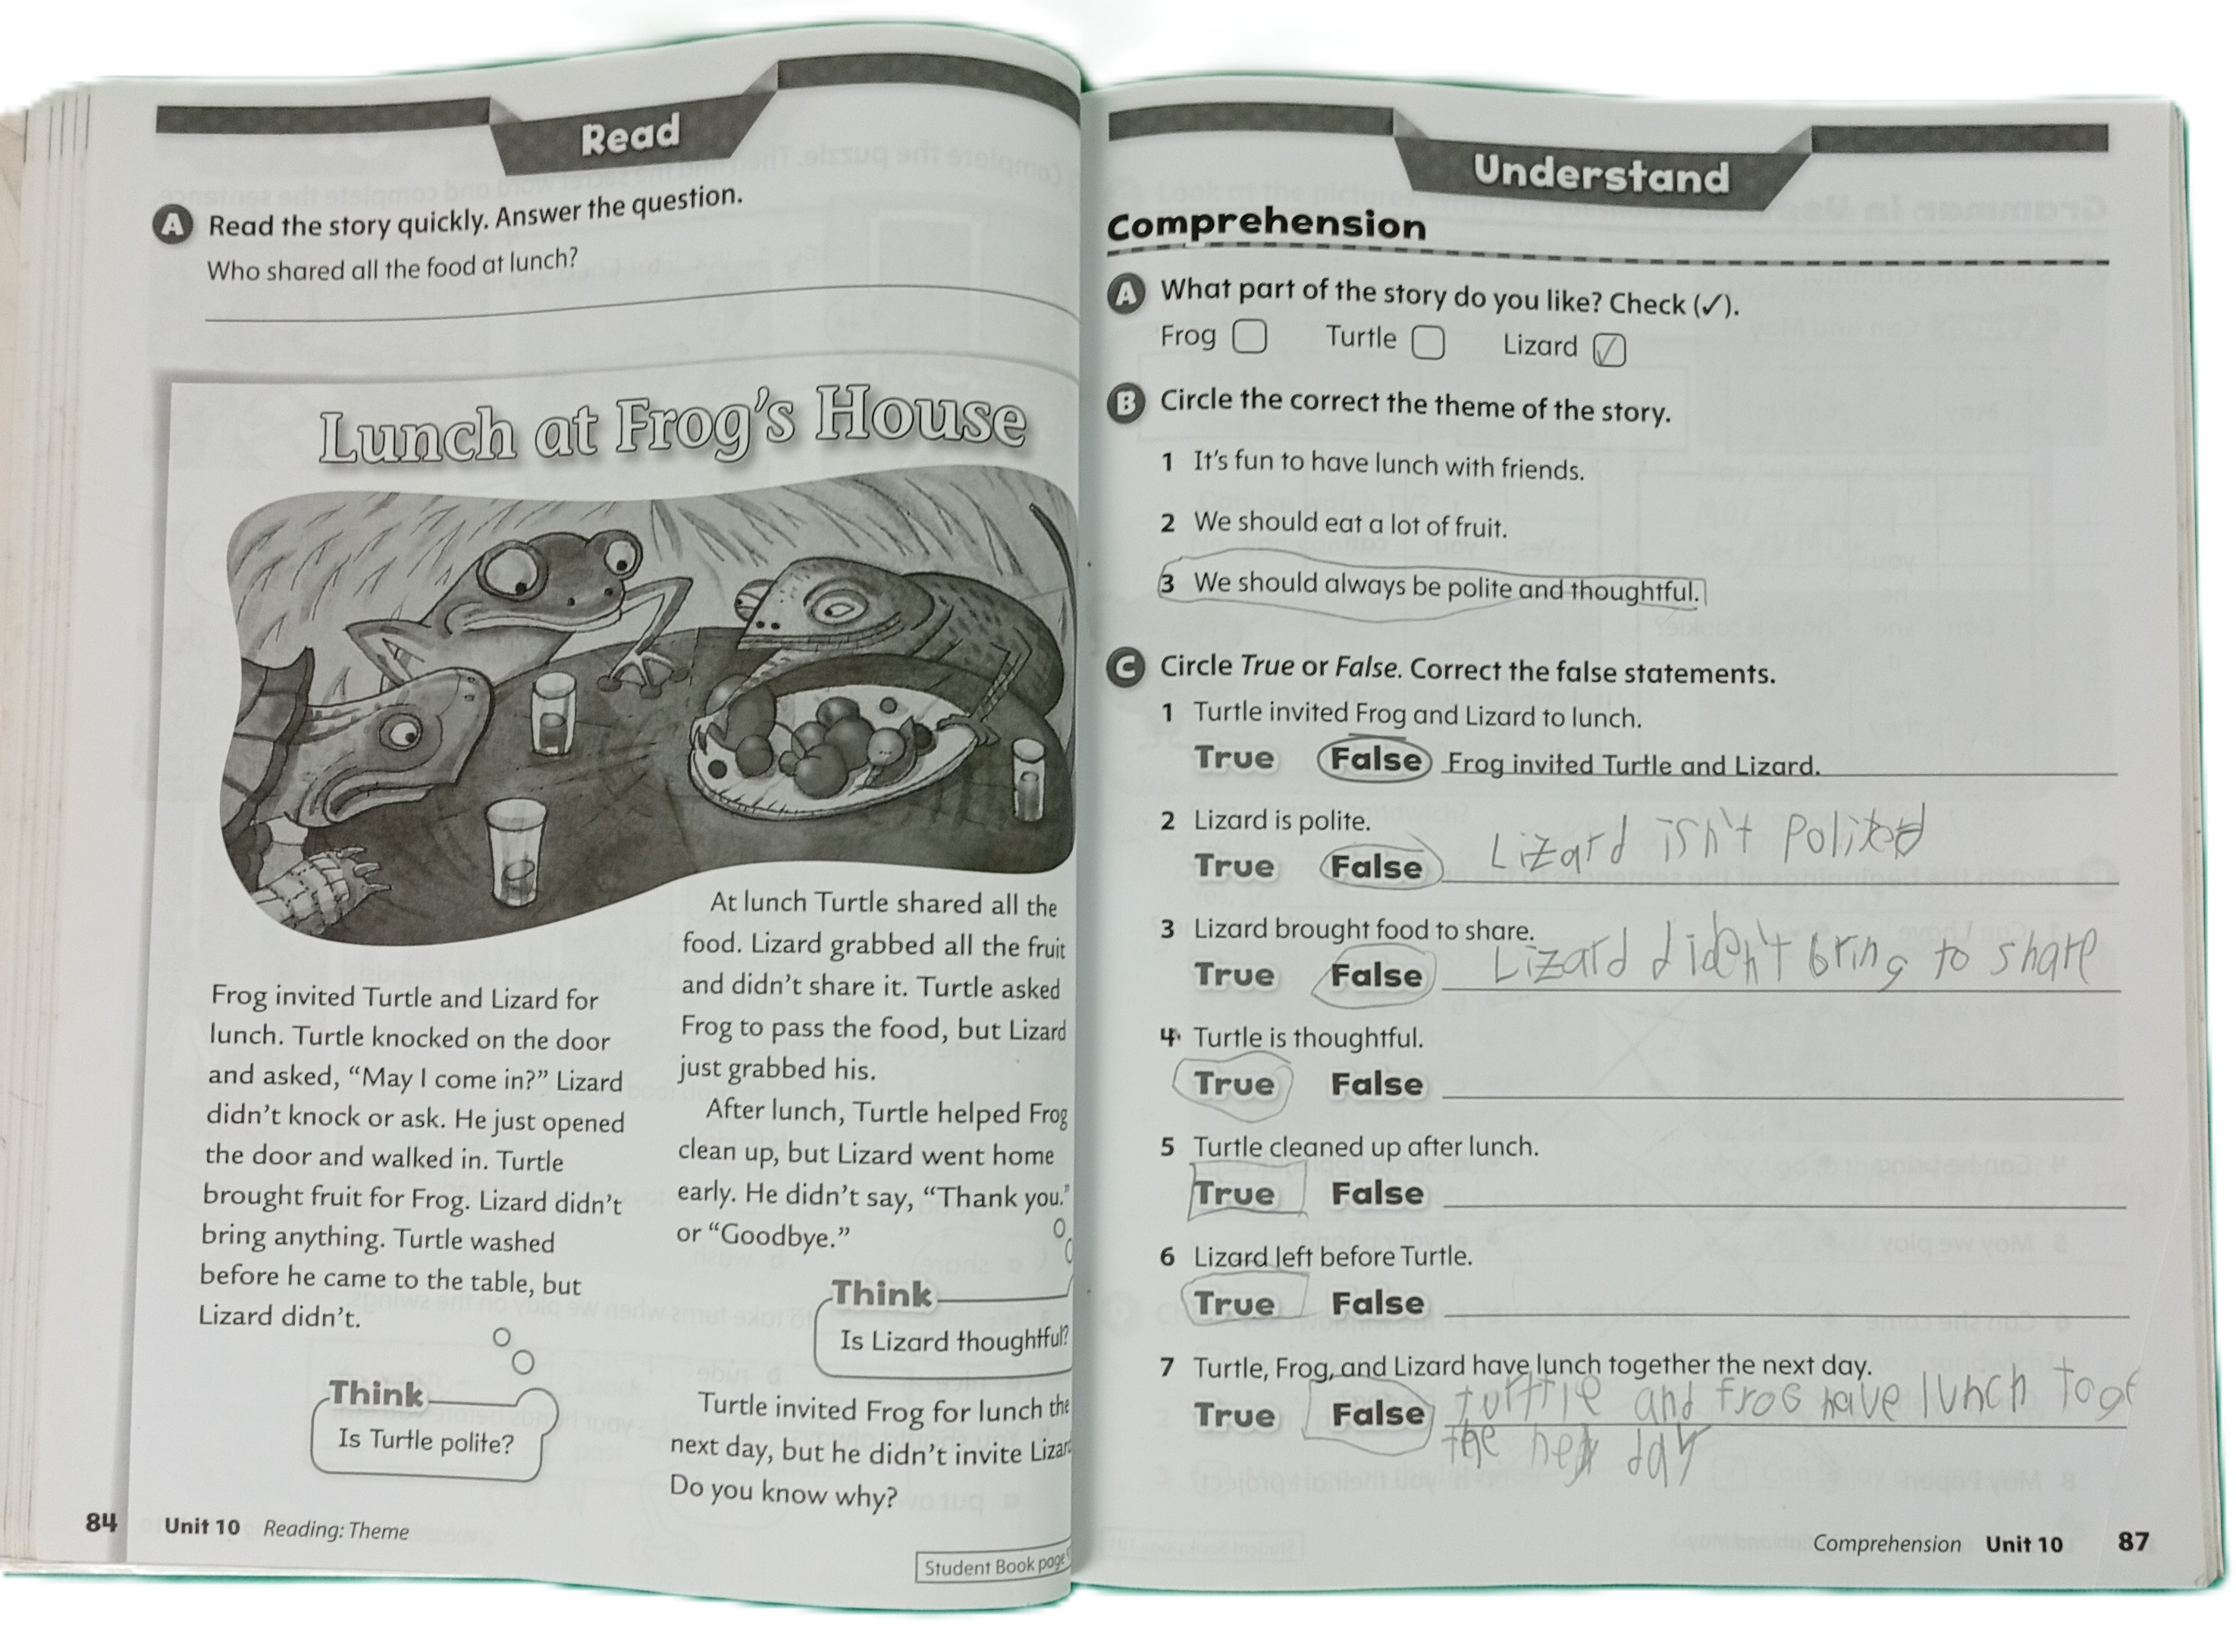 Read
A Read the story quickly. Answer the question.
Who shared all the food at lunch?
Lunch at Frog's House
Frog invited Turtle and Lizard for
lunch. Turtle knocked on the door
and asked, "May I come in?" Lizard
didn't knock or ask. He just opened
the door and walked in. Turtle
brought fruit for Frog. Lizard didn't
bring anything. Turtle washed
before he came to the table, but
Lizard didn't.
Think
Is Turtle polite?
At lunch Turtle shared all the
food. Lizard grabbed all the fruit
and didn't share it. Turtle asked
Frog to pass the food, but Lizard
just grabbed his.
After lunch, Turtle helped Frog
clean up, but Lizard went home
early. He didn't say, "Thank you."
or "Goodbye."
Think
Is Lizard thoughtful?
Turtle invited Frog for lunch the
next day, but he didn't invite Lizar
Do you know why?
84 Unit 10 Reading: Theme
Student Book page
Understand
Comprehension
A What part of the story do you like? Check (✓).
Frog Turtle Lizard ✓
B Circle the correct the theme of the story.
1 It's fun to have lunch with friends.
2 We should eat a lot of fruit.
3 We should always be polite and thoughtful.
C Circle True or False. Correct the false statements.
1 Turtle invited Frog and Lizard to lunch.
True False Frog invited Turtle and Lizard.
2 Lizard is polite.
True False Lizard isn't
3 Lizard brought food to share.
True False Lizard diden't bring to share
4 Turtle is thoughtful.
True False
5 Turtle cleaned up after lunch.
True False
6 Lizard left before Turtle.
True False
7 Turtle, Frog, and Lizard have lunch together the next day.
True False and frog have lunch toge
the day
Comprehension Unit 10 87